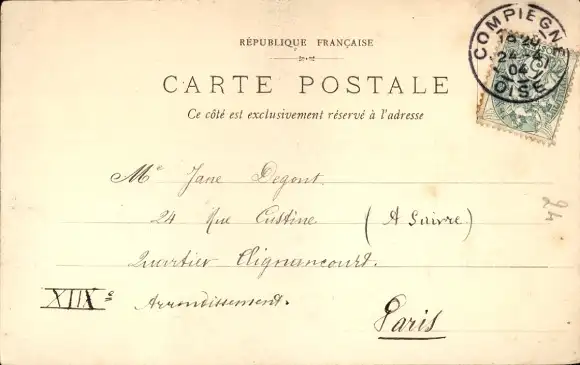 RÉPUBLIQUE FRANÇAISE
CARTE POSTALE
Ce côté est exclusivement réservé à l'adresse
COMPIEGNE
OISE
Me Jane Degont
24 Rue Custine (A Suivre)
Quartier Clignancourt.
XIIX e Arrondissement.
Paris
24